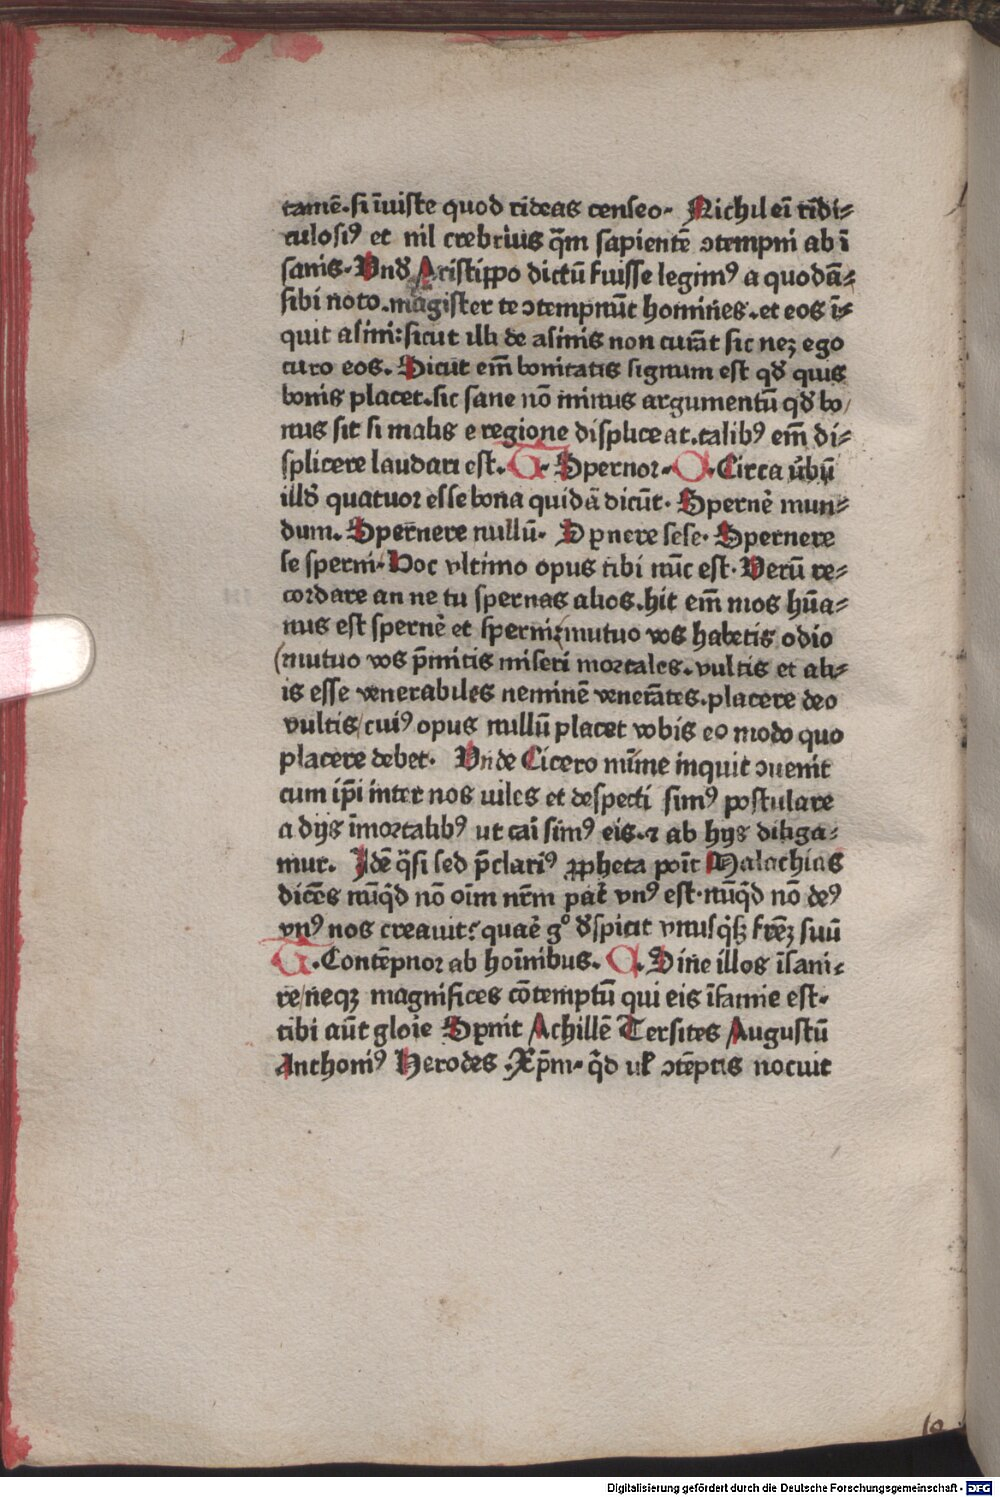 tamē.si īuiste quod rideas censeo. Nichil eī rīdi⸗
culosiꝰ et nil crebrius q̄m sapientē ↄtempni ab ī
sanis. Vnð Aristippo dictū fuisse legimꝰ a quodā⸗
sibi noto.magister te ↄtempnūt homines.et eos ī⸗
quit asini: sicut illi de asinis non curāt sic neꝫ ego
curo eos. Sicut em̄ bonitatis signum est qð quis
bonis placet.sic sane nō minus argumentū qð bo/
nus sit si malis e regione displiceat.talibꝰ em̄ di⸗
splicere laudari est. G. Spernor. O. Circa v̄bū
illð quatuor esse bona quidā dicūt. Spernē mun⸗
dum. Spernere nullū. Spnere sese. Spernere
se sperni. Hoc vltimo opus tibi nūc est. Verū re⸗
cordare an ne tu spernas alios.hit em̄ mos hūa⸗
nus est spernē et sperni: mutuo vos habetis odio
(mutuo vos p̄mitis miseri mortales.vultis et ali⸗
is esse venerabiles neminē venerātes.placere deo
vultis/cuiꝰ opus nullū placet vobis eo modo quo
placere debet. Vnde Cicero nūme inquit ↄuenit
cum ip̄i inter nos uiles et despecti simꝰ postulare
a dijs īmortalibꝰ ut cari simꝰ eis.⁊ ab hijs diliga⸗
mur. Idē q̄si sed p̄clariꝰ ꝓpheta poīt Malachias
dicēs nūq̄d nō oīm nr̄m pat̄ vnꝰ est.nūq̄d nō deꝰ
vnꝰ nos creauit? quaē gº ðspicit vnusq̄sꝫ fr̄eꝫ suū
G. Contēpnor ab hoīnibus. O. Sine illos īsani⸗
re/neqꝫ magnifices cōtemptū qui eis īfamie est.
tibi aūt gloie Spnit Achillē Tersites Augustū
Anthoniꝰ Herodes .Xp̄m. q̄d ul̄ ↄtēptis nocuit
Digitalisierung gefördert durch die Deutsche Forschungsgemeinschaft - DFG